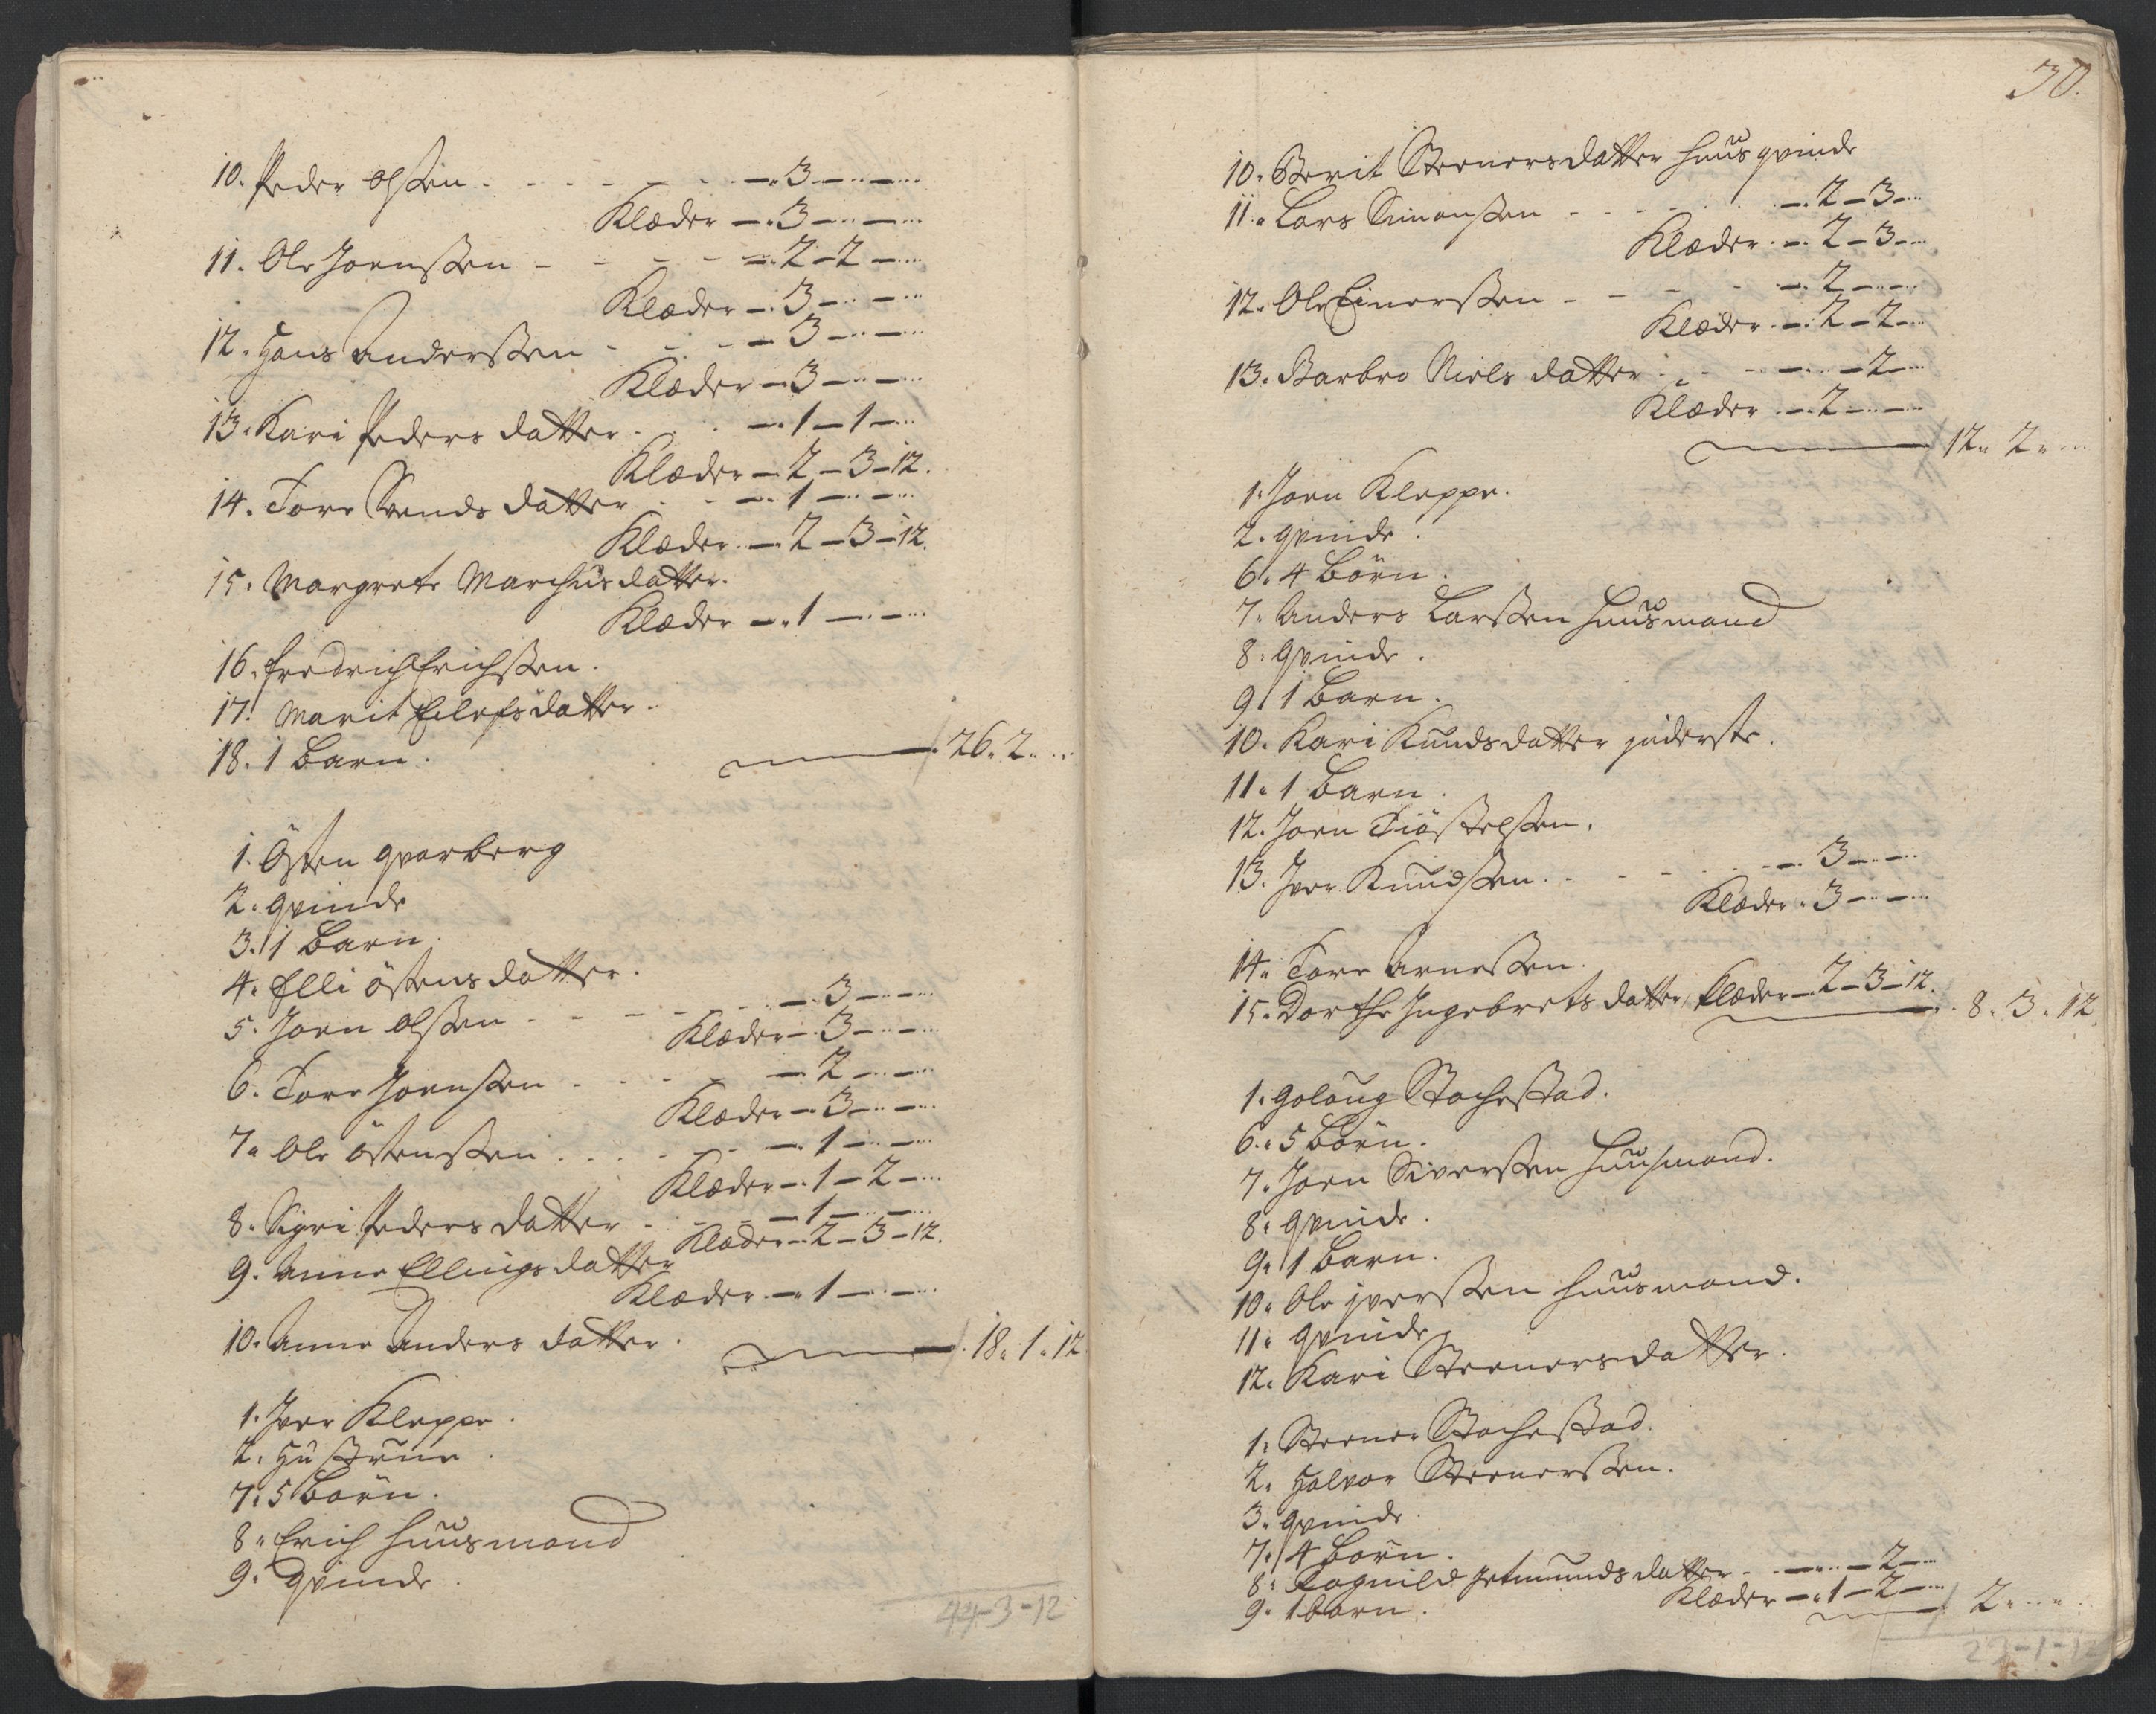 10. Peder Olsen. - - - - - - 3 - - -
Klæder - 3 - - -
11. Ole Joensen - - - - 2 - 2 -
Klæder - 3 - - -
12. Hans Andersen - - - 3 - - -
Klæder - 3 - - -
13. Kari Peders datter. - - 1 - 1 -
Klæder - 2 - 3 - 12.
14. Tore Svends datter - - 1 - - -
Klæder - 2 - 3 - 12.
15. Margrete Marchus datter.
Klæder - 1 - - -
16. Fredrich Erichsen.
17. Marit Eilefs datter.
18. 1 Barn. 26. 2. - -
1. Østen Qvarberg
2. Qvinde
3. 1 Barn.
4. Elli Østens datter.
5. Joen Olsen - - - - - 3 - - -
Klæder - 3 - - -
6. Tore Joensen - - - 2 - - -
Klæder - 3 - - -
7. Ole Østensen - - - - 1 - - -
Klæder - 1 - 2 -
8. Sigri Peders datter - - 1 - - -
Klæder - 2 - 3 - 12.
9. Anne Ellings datter
Klæder - 1 - - -
10. Anne Anders datter. 18. 1. 12
1. Iver Kleppe.
2. Hustrue.
7. 5 Børn.
8. Erich Huusmand
9. Qvinde.
44-3-12
30.
10. Berit Steenersdatter huus qvinde
11. Lars Simonsen - - - 2 - 3 -
Klæder - 2 - 3 -
12. Ole Einersen - - - 2 - - -
Klæder - 2 - 2 -
13. Barbro Niels datter - - - - 2 -
Klæder - 2 - - -
12. 2. - -
1. Joen Kleppe.
2. Qvinde.
6. 4 Børn.
7. Anders Larsen Huusmand
8. Qvinde.
9. 1 Barn.
10. Kari Knuds datter inderste.
11. 1 Barn.
12. Joen Tiøstelsen.
13. Iver Knudsen. - - - - 3 - - -
Klæder - 3 - - -
14. Tore Arnesen.
15. Dorthe Ingebrets datter, Klæder - 2 - 3 - 12.
8. 3. 12
1. Golaug Stochestad.
6. 5 Børn.
7. Joen Siversen Huusmand.
8. Qvinde.
9. 1 Barn.
10. Ole Iversen huusmand.
11. Qvinde.
12. Kari Steenersdatter.
1. Steener Stochestad.
2. Halvor Steenersen.
3. Qvinde.
7. 4 Børn.
8. Ragnild Jetmunds datter - - - - 2 -
Klæder - 1 - 2 -
9. 1 barn. 2. - -
23-1-12